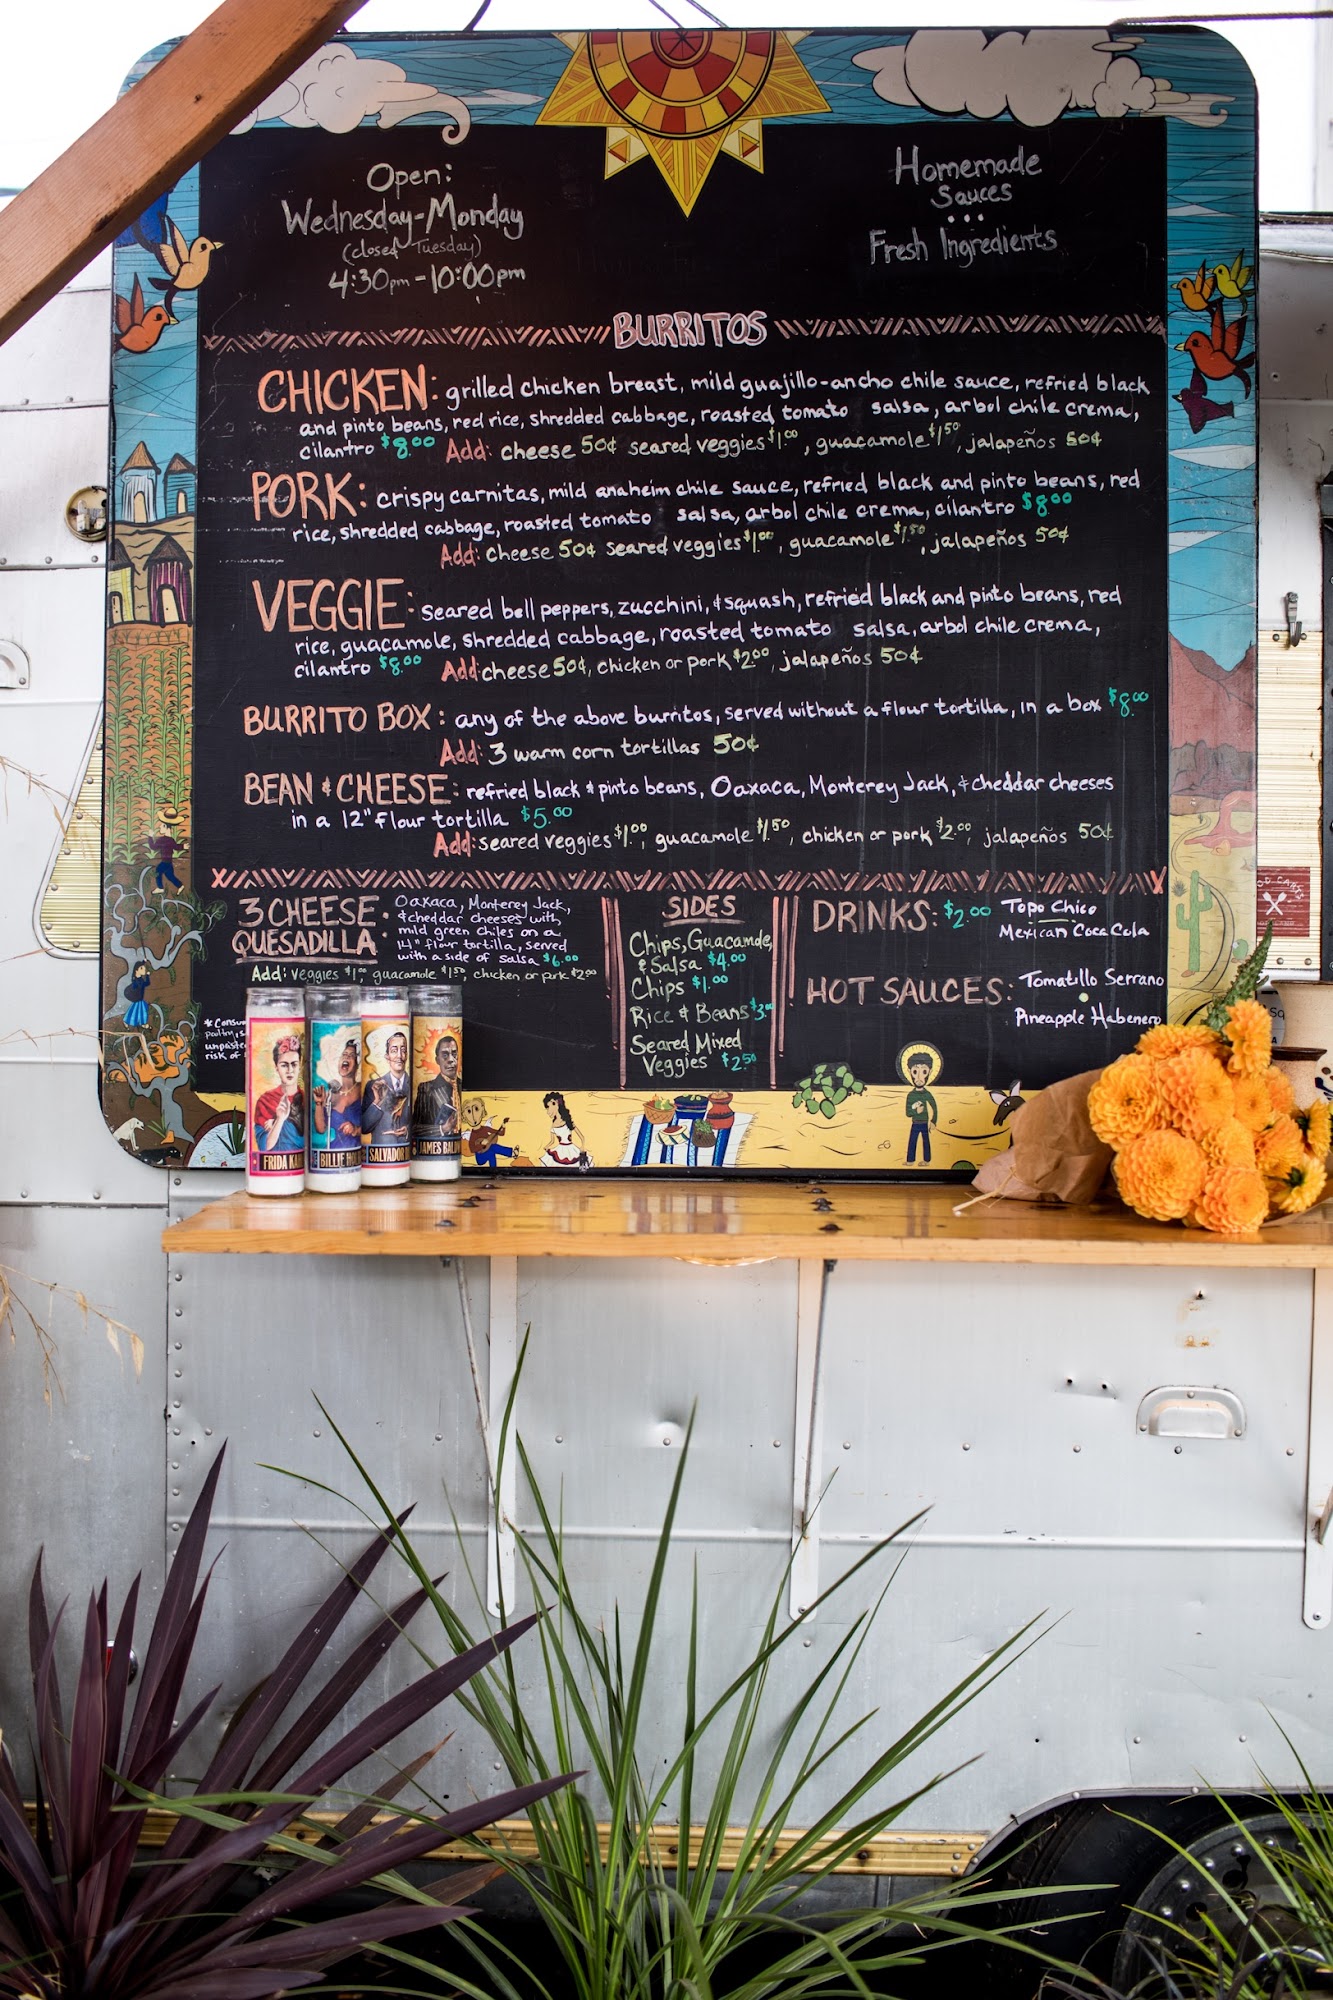 Open:
Wednesday-Monday
(closed Tuesday)
4:30pm-10:00pm
Homemade
Sauces
...
Fresh Ingredients
BURRITOS
CHICKEN: grilled chicken breast, mild guajillo-ancho chile sauce, refried black
and pinto beans, red rice, shredded cabbage, roasted tomato salsa, arbol chile crema,
cilantro $8.00 Add: cheese 50¢ seared veggies $1.00, guacamole $1.50, jalapeños 50¢
PORK: crispy carnitas, mild anaheim chile sauce, refried black and pinto beans, red
rice, shredded cabbage, roasted tomato salsa, arbol chile crema, cilantro $8.00
Add: cheese 50¢ seared veggies $1.00, guacamole $1.50, jalapeños 50¢
VEGGIE: seared bell peppers, zucchini, & squash, refried black and pinto beans, red
rice, guacamole, shredded cabbage, roasted tomato salsa, arbol chile crema,
cilantro $8.00 Add: cheese 50¢, chicken or pork $2.00, jalapeños 50¢
BURRITO BOX: any of the above burritos, served without a flour tortilla, in a box $8.00
Add: 3 warm corn tortillas 50¢
BEAN & CHEESE: refried black & pinto beans, Oaxaca, Monterey Jack, & cheddar cheeses
in a 12" flour tortilla $5.00
Add: seared veggies $1.00, guacamole $1.50, chicken or pork $2.00, jalapeños 50¢
3 CHEESE
QUESADILLA:
Oaxaca, Monterey Jack,
& cheddar cheeses with
mild green chiles on a
14" flour tortilla, served
with a side of salsa $6.00
Add: veggies $1.00 guacamole $1.50, chicken or pork $2.00
* Consu
poultry
unpast
risk of
SIDES
Chips, Guacamole,
& Salsa $4.00
Chips $1.00
Rice & Beans $3.00
Seared Mixed
Veggies $2.50
DRINKS: $2.00
Topo Chico
Mexican Coca Cola
HOT SAUCES:
Tomatillo Serrano
•
Pineapple Habenero
FRIDA KA
BILLIE HOL
SALVADOR
JAMES BAL